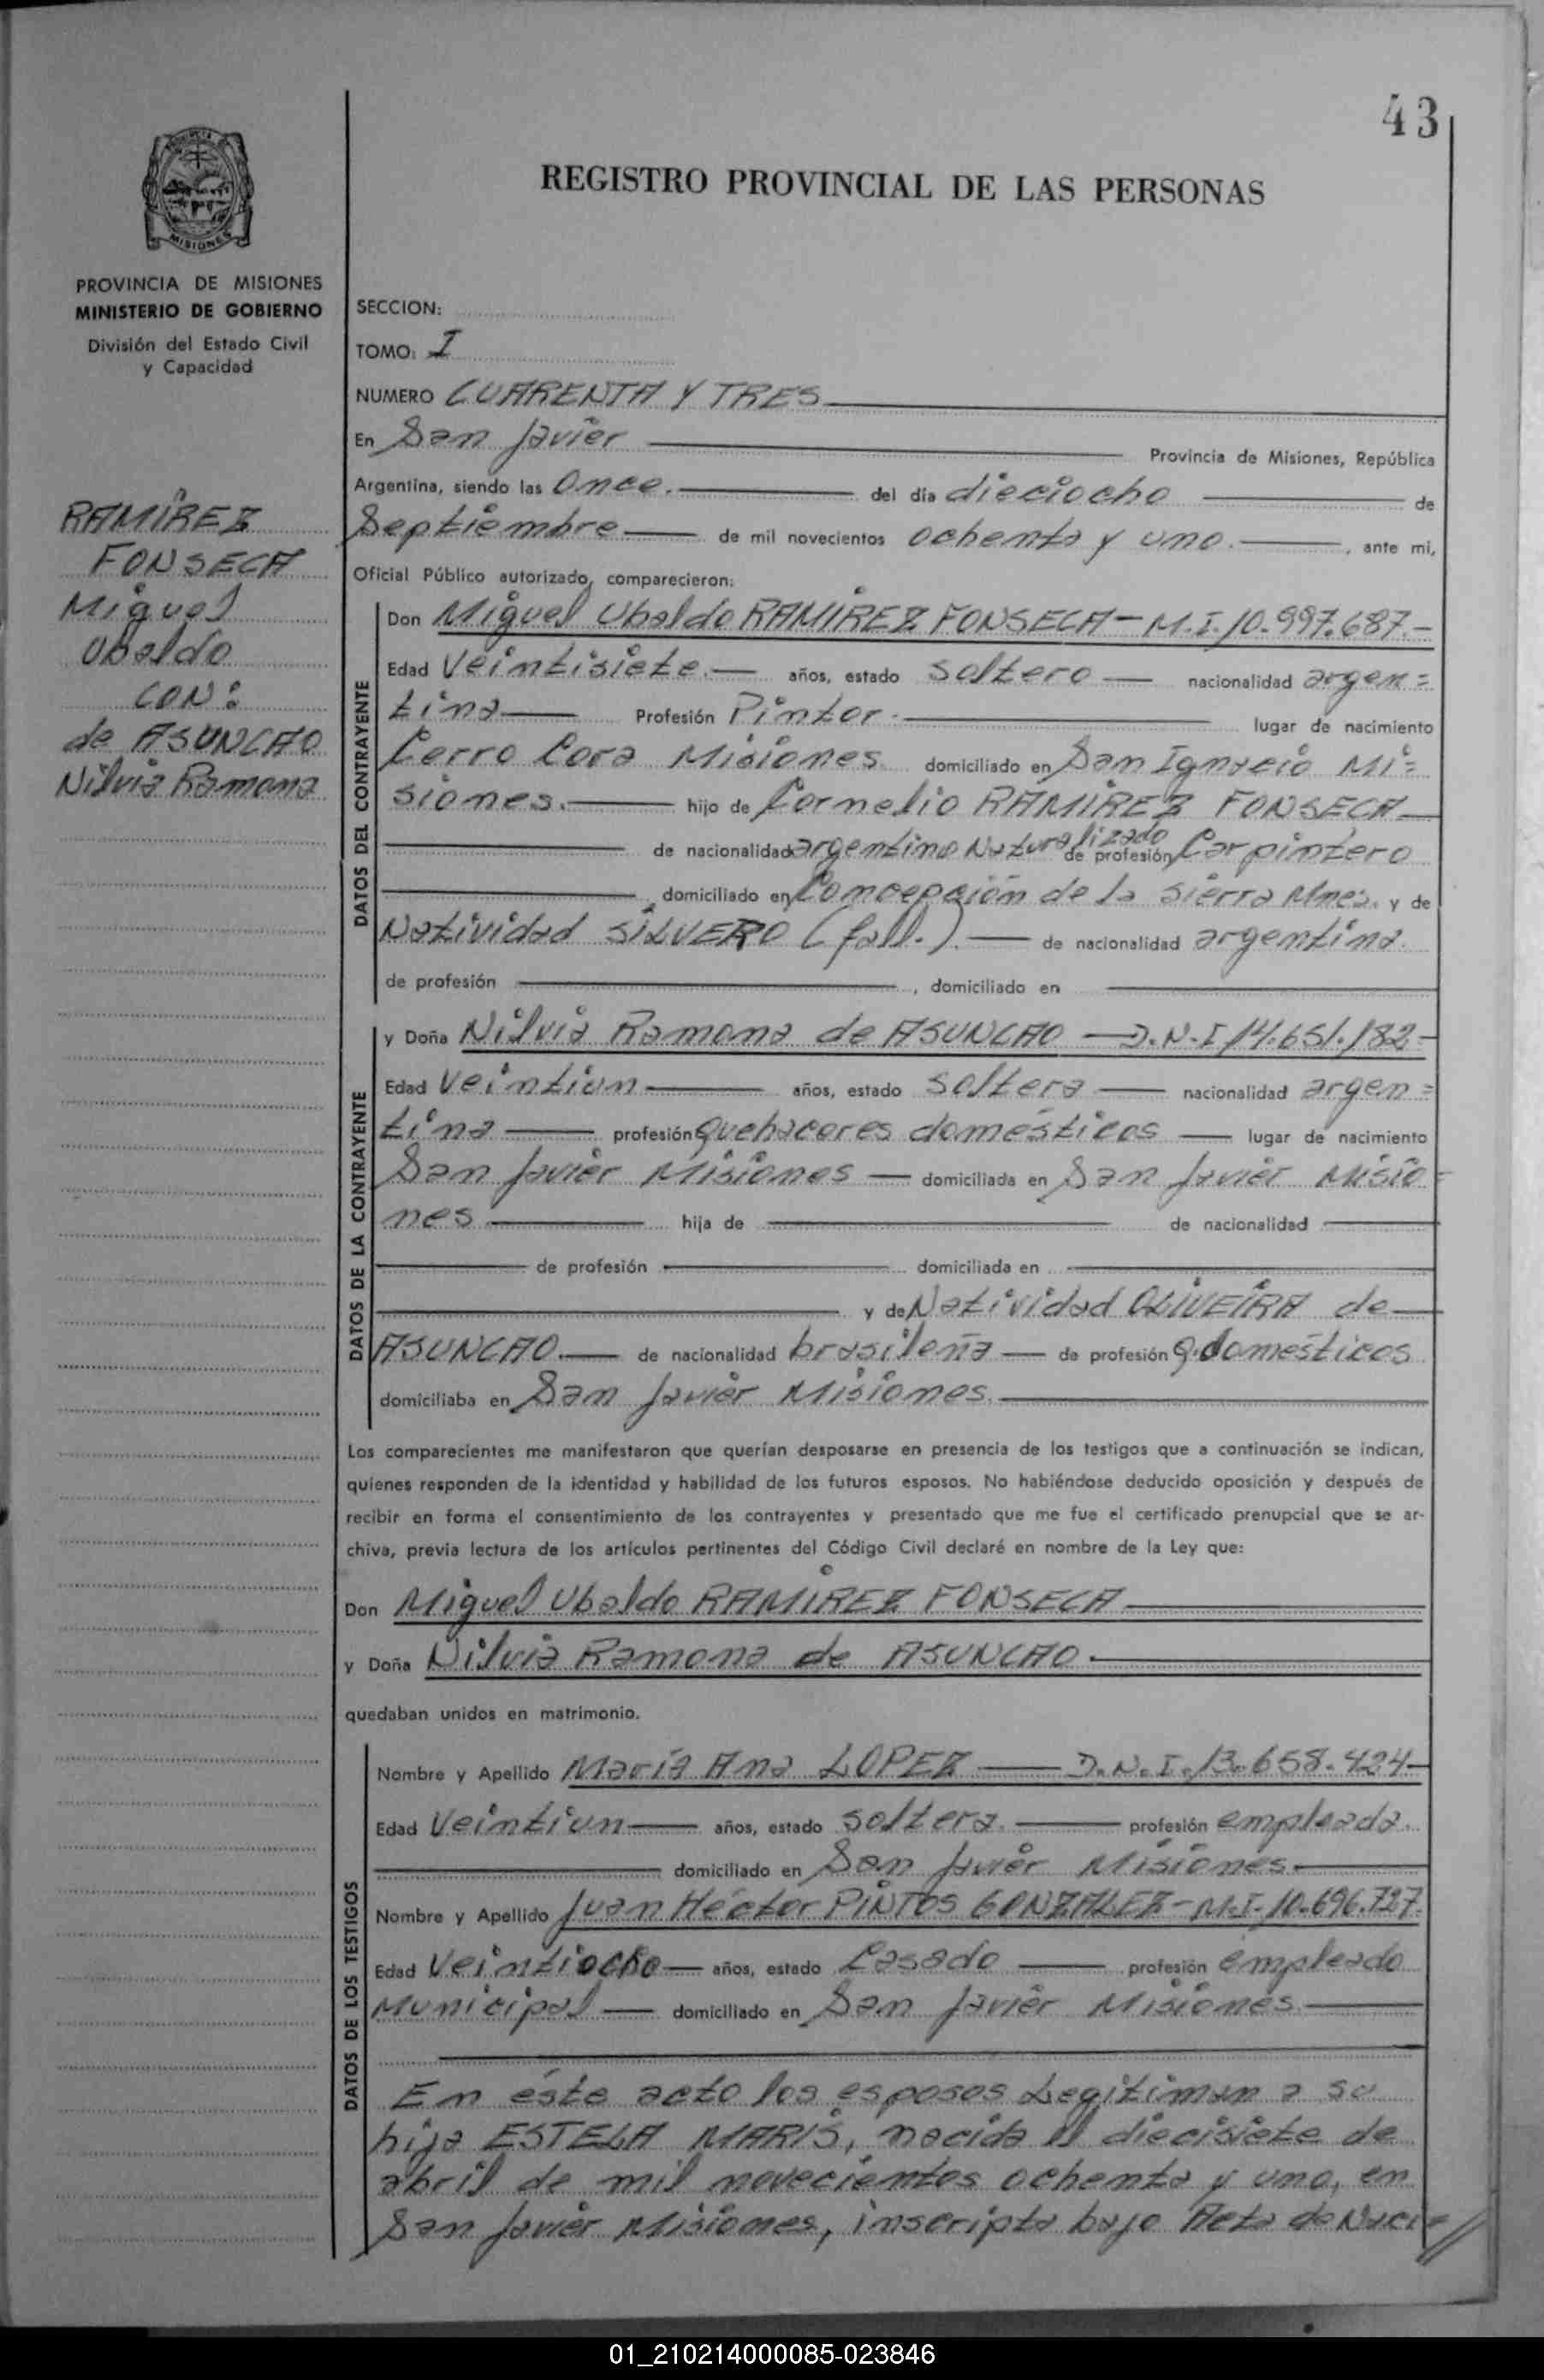 43
REGISTRO PROVINCIAL DE LAS PERSONAS
MISIONES
PROVINCIA DE MISIONES
MINISTERIO DE GOBIERNO
División del Estado Civil
y Capacidad
SECCION:
TOMO: I
NUMERO CUARENTA Y TRES
En San Javier Provincia de Misiones, República
Argentina, siendo las Once. del día dieciocho de
Septiembre de mil novecientos ochenta y uno. , ante mi,
Oficial Público autorizado, comparecieron:
RAMIREZ
FONSECA
Miguel
Ubaldo
CON:
de ASUNCAO
Nilvia Ramona
DATOS DEL CONTRAYENTE
Don Miguel Ubaldo RAMIREZ FONSECA - M.I. 10.997.687.-
Edad Veintisiete.- años, estado soltero - nacionalidad argen=
tina Profesión Pintor.- lugar de nacimiento
Cerro Cora Misiones domiciliado en San Ignacio Mi=
siones.- hijo de Cornelio RAMIREZ FONSECA
de nacionalidad argentino Naturalizado de profesión Carpintero
, domiciliado en Concepción de la Sierra Mnes. y de
Natividad SILVERO (fall.).- de nacionalidad argentina.
de profesión , domiciliado en
DATOS DE LA CONTRAYENTE
y Doña Nilvia Ramona de ASUNCAO - D.N.I 14.651.182-
Edad Veintiun años, estado soltera - nacionalidad argen=
tina profesión quehaceres domésticos - lugar de nacimiento
San Javier Misiones - domiciliada en San Javier Misio=
nes hija de de nacionalidad
de profesión domiciliada en
y de Natividad OLIVEIRA de
ASUNCAO.- de nacionalidad brasileña - de profesión q.domésticos
domiciliaba en San Javier Misiones.
Los comparecientes me manifestaron que querían desposarse en presencia de los testigos que a continuación se indican,
quienes responden de la identidad y habilidad de los futuros esposos. No habiéndose deducido oposición y después de
recibir en forma el consentimiento de los contrayentes y presentado que me fue el certificado prenupcial que se ar-
chiva, previa lectura de los artículos pertinentes del Código Civil declaré en nombre de la Ley que:
Don Miguel Ubaldo RAMIREZ FONSECA
y Doña Nilvia Ramona de ASUNCAO.
quedaban unidos en matrimonio.
DATOS DE LOS TESTIGOS
Nombre y Apellido María Ana LOPEZ - D.N.I. 13.658.424-
Edad Veintiun años, estado soltera. profesión empleada.
domiciliado en San Javier Misiones.
Nombre y Apellido Juan Héctor PINTOS GONZALEZ - M.I. 10.696.727.
Edad Veintiocho años, estado Casado profesión empleado
Municipal domiciliado en San Javier Misiones.
En éste acto los esposos Legitiman a su
hija ESTELA MARIS, nacida el diecisiete de
abril de mil novecientos ochenta y uno, en
San Javier Misiones, inscripta bajo Acta de Naci=//
01_210214000085-023846